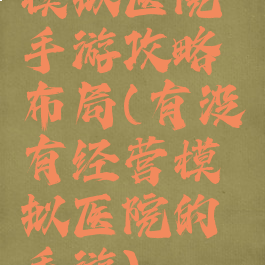 模拟医院
手游攻略
布局(有没
有经营模
拟医院的
手游)